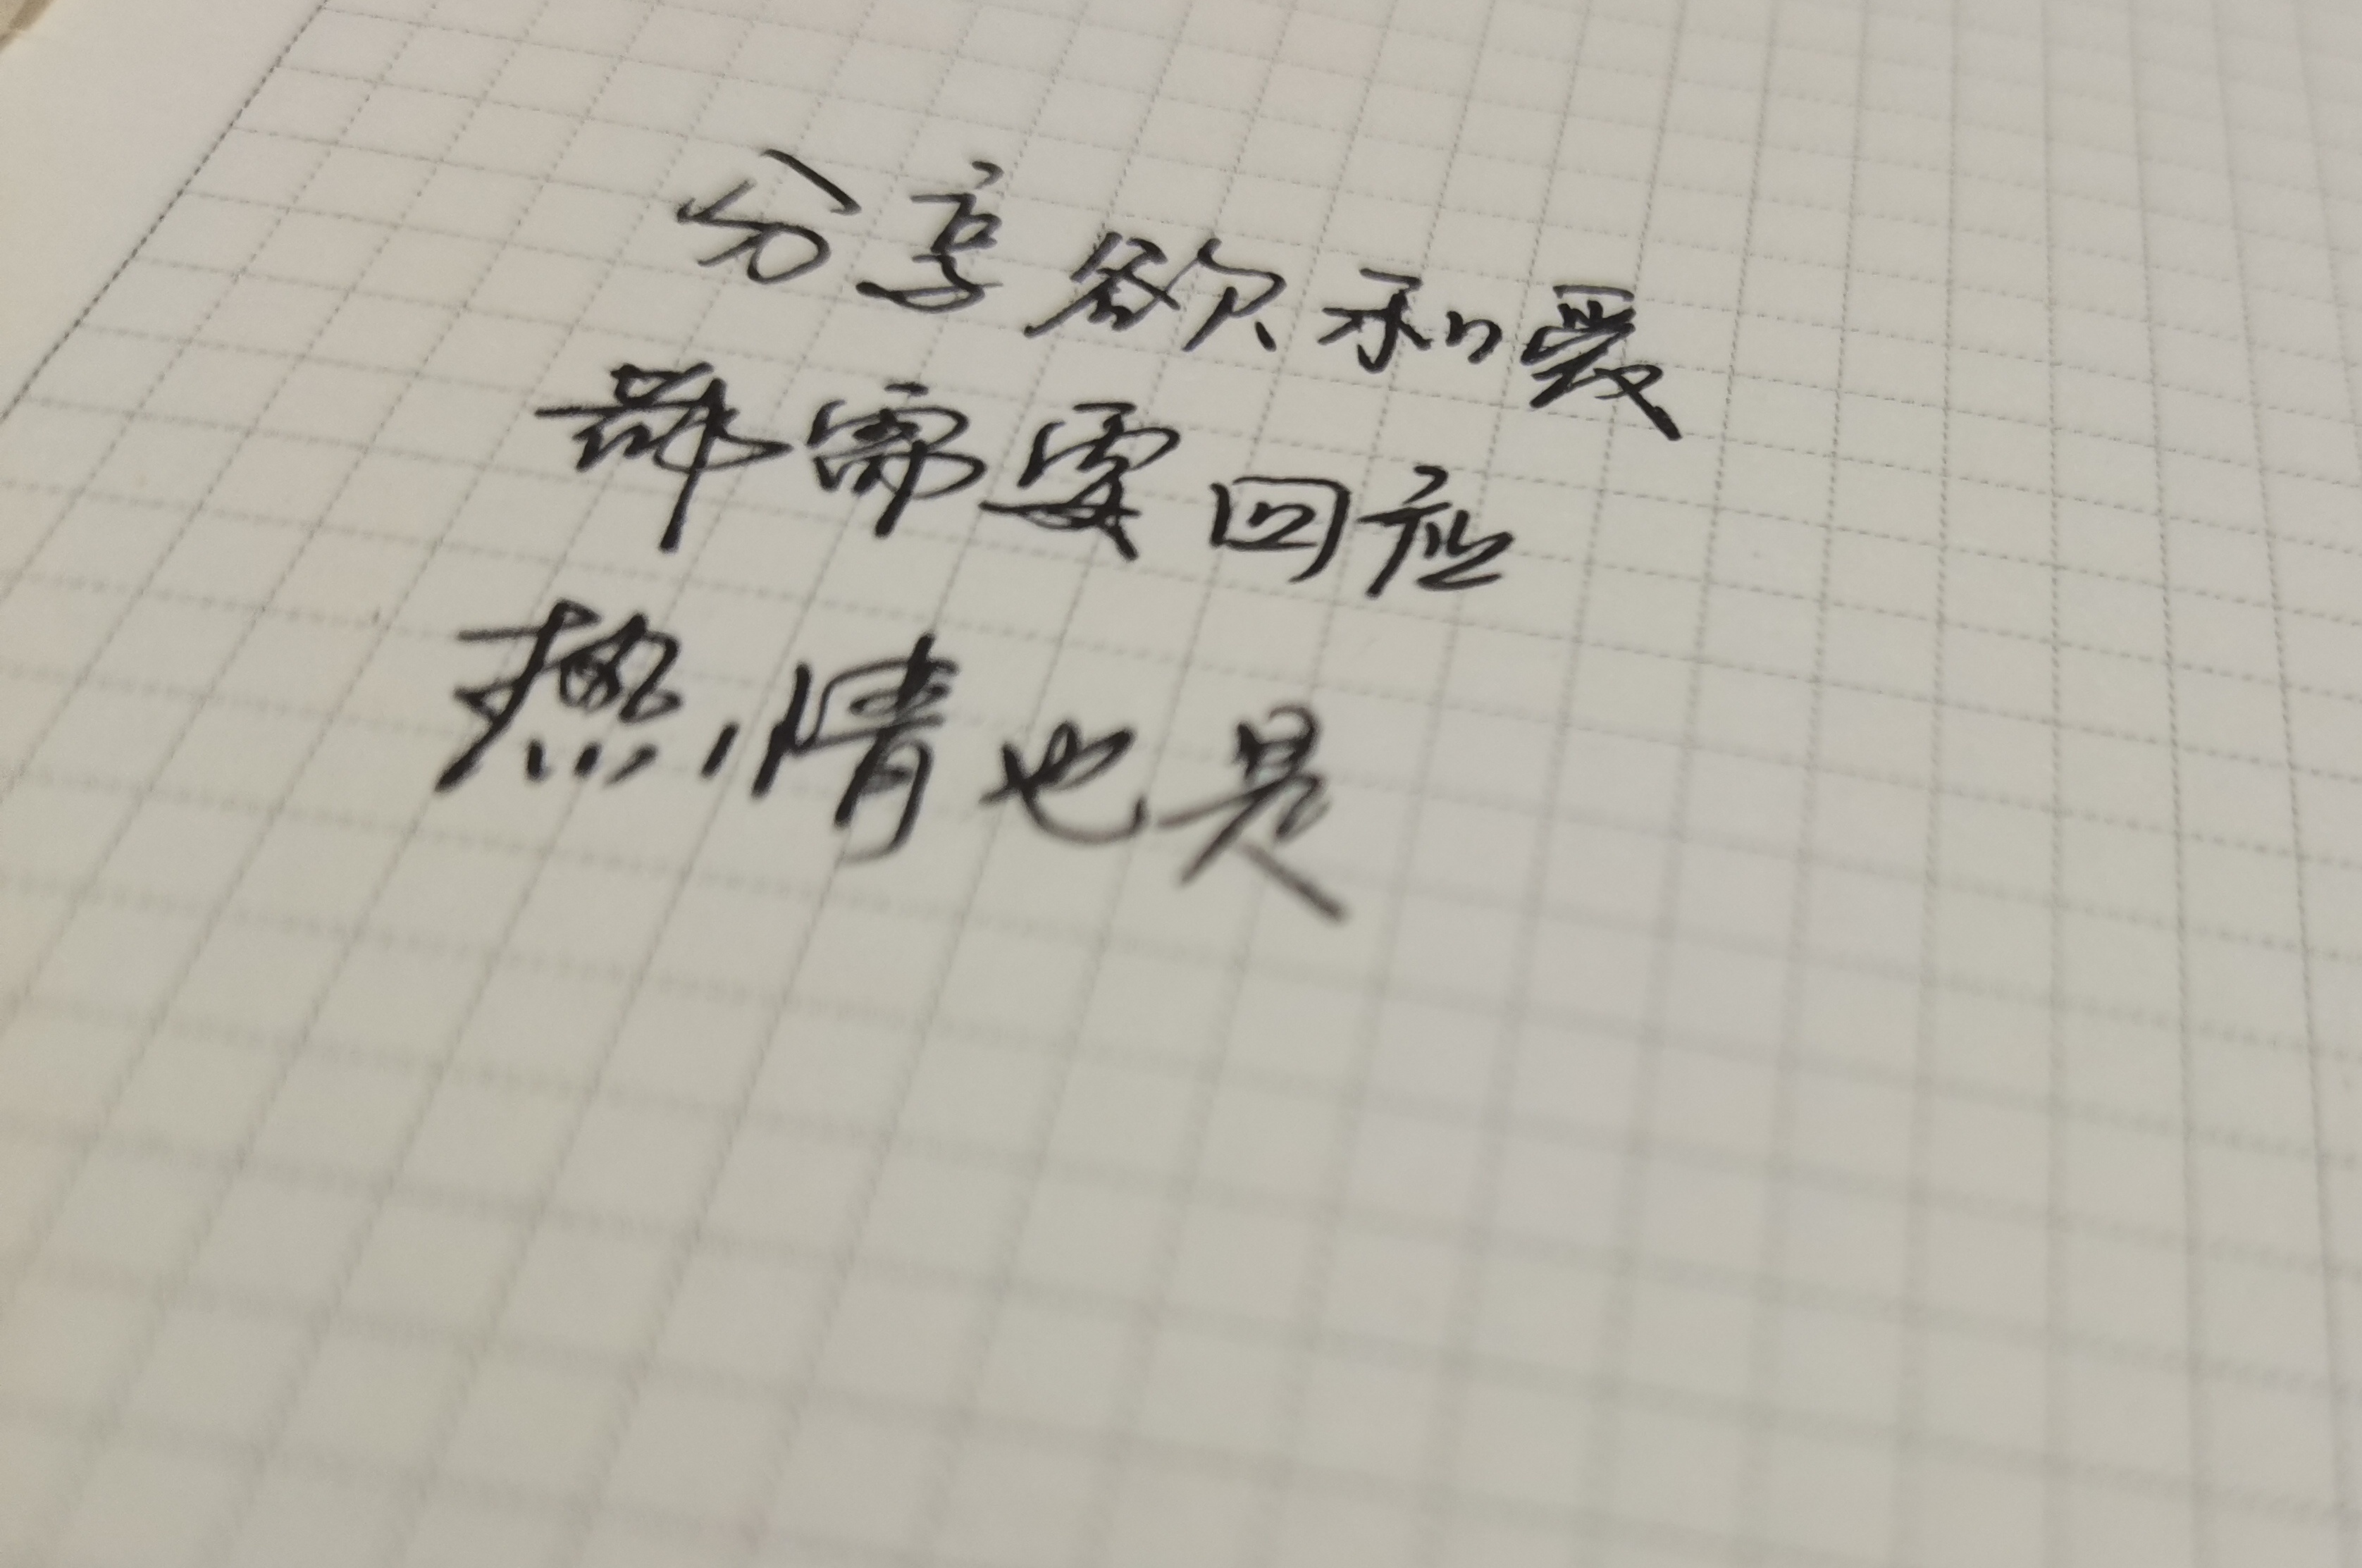 分享欲和爱
都需要回应
热情也是